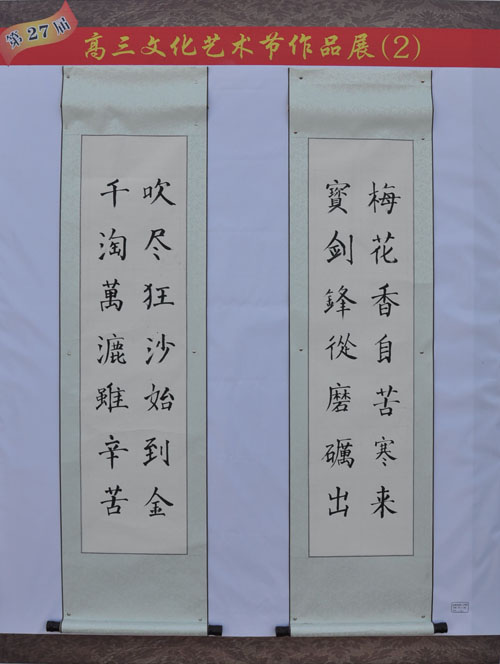 第27届
高三文化艺术节作品展(2)
千淘萬漉雖辛苦
吹尽狂沙始到金
寶剑鋒從磨礪出
梅花香自苦寒来